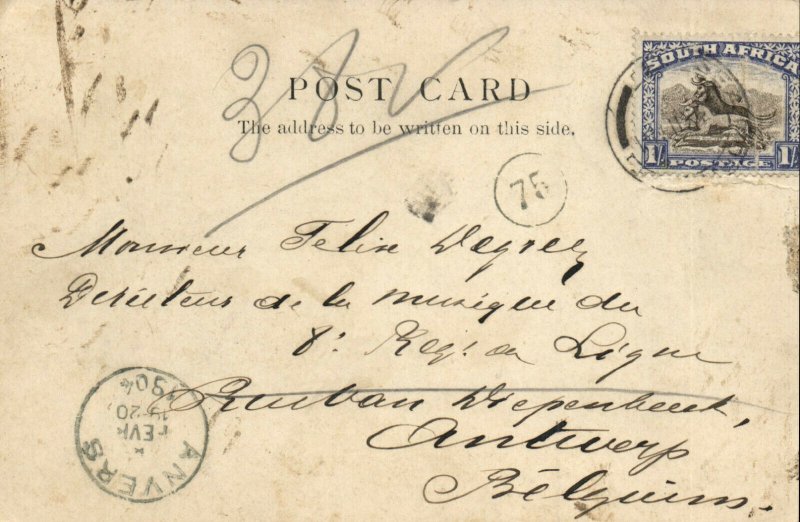 382
POST CARD
The address to be written on this side.
SOUTH AFRICA
1/- POSTAGE 1/-
75
Monsieur Felix Degrez
Directeur de la musique du
8e Regt de Ligne
Rue Van Diepenbeek,
Antwerp
Belgium.
ANVERS
15-20
1904